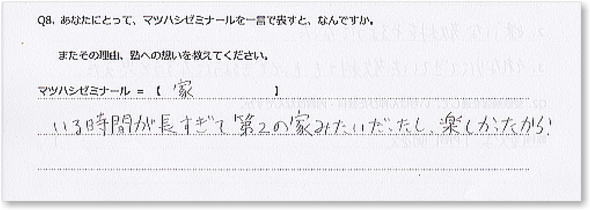 Q8. あなたにとって、マツハシゼミナールを一言で表すと、なんですか。
またその理由、塾への想いを教えてください。
マツハシゼミナール = 【 家 】
いる時間が長すぎて第2の家みたいだったし、楽しかったから